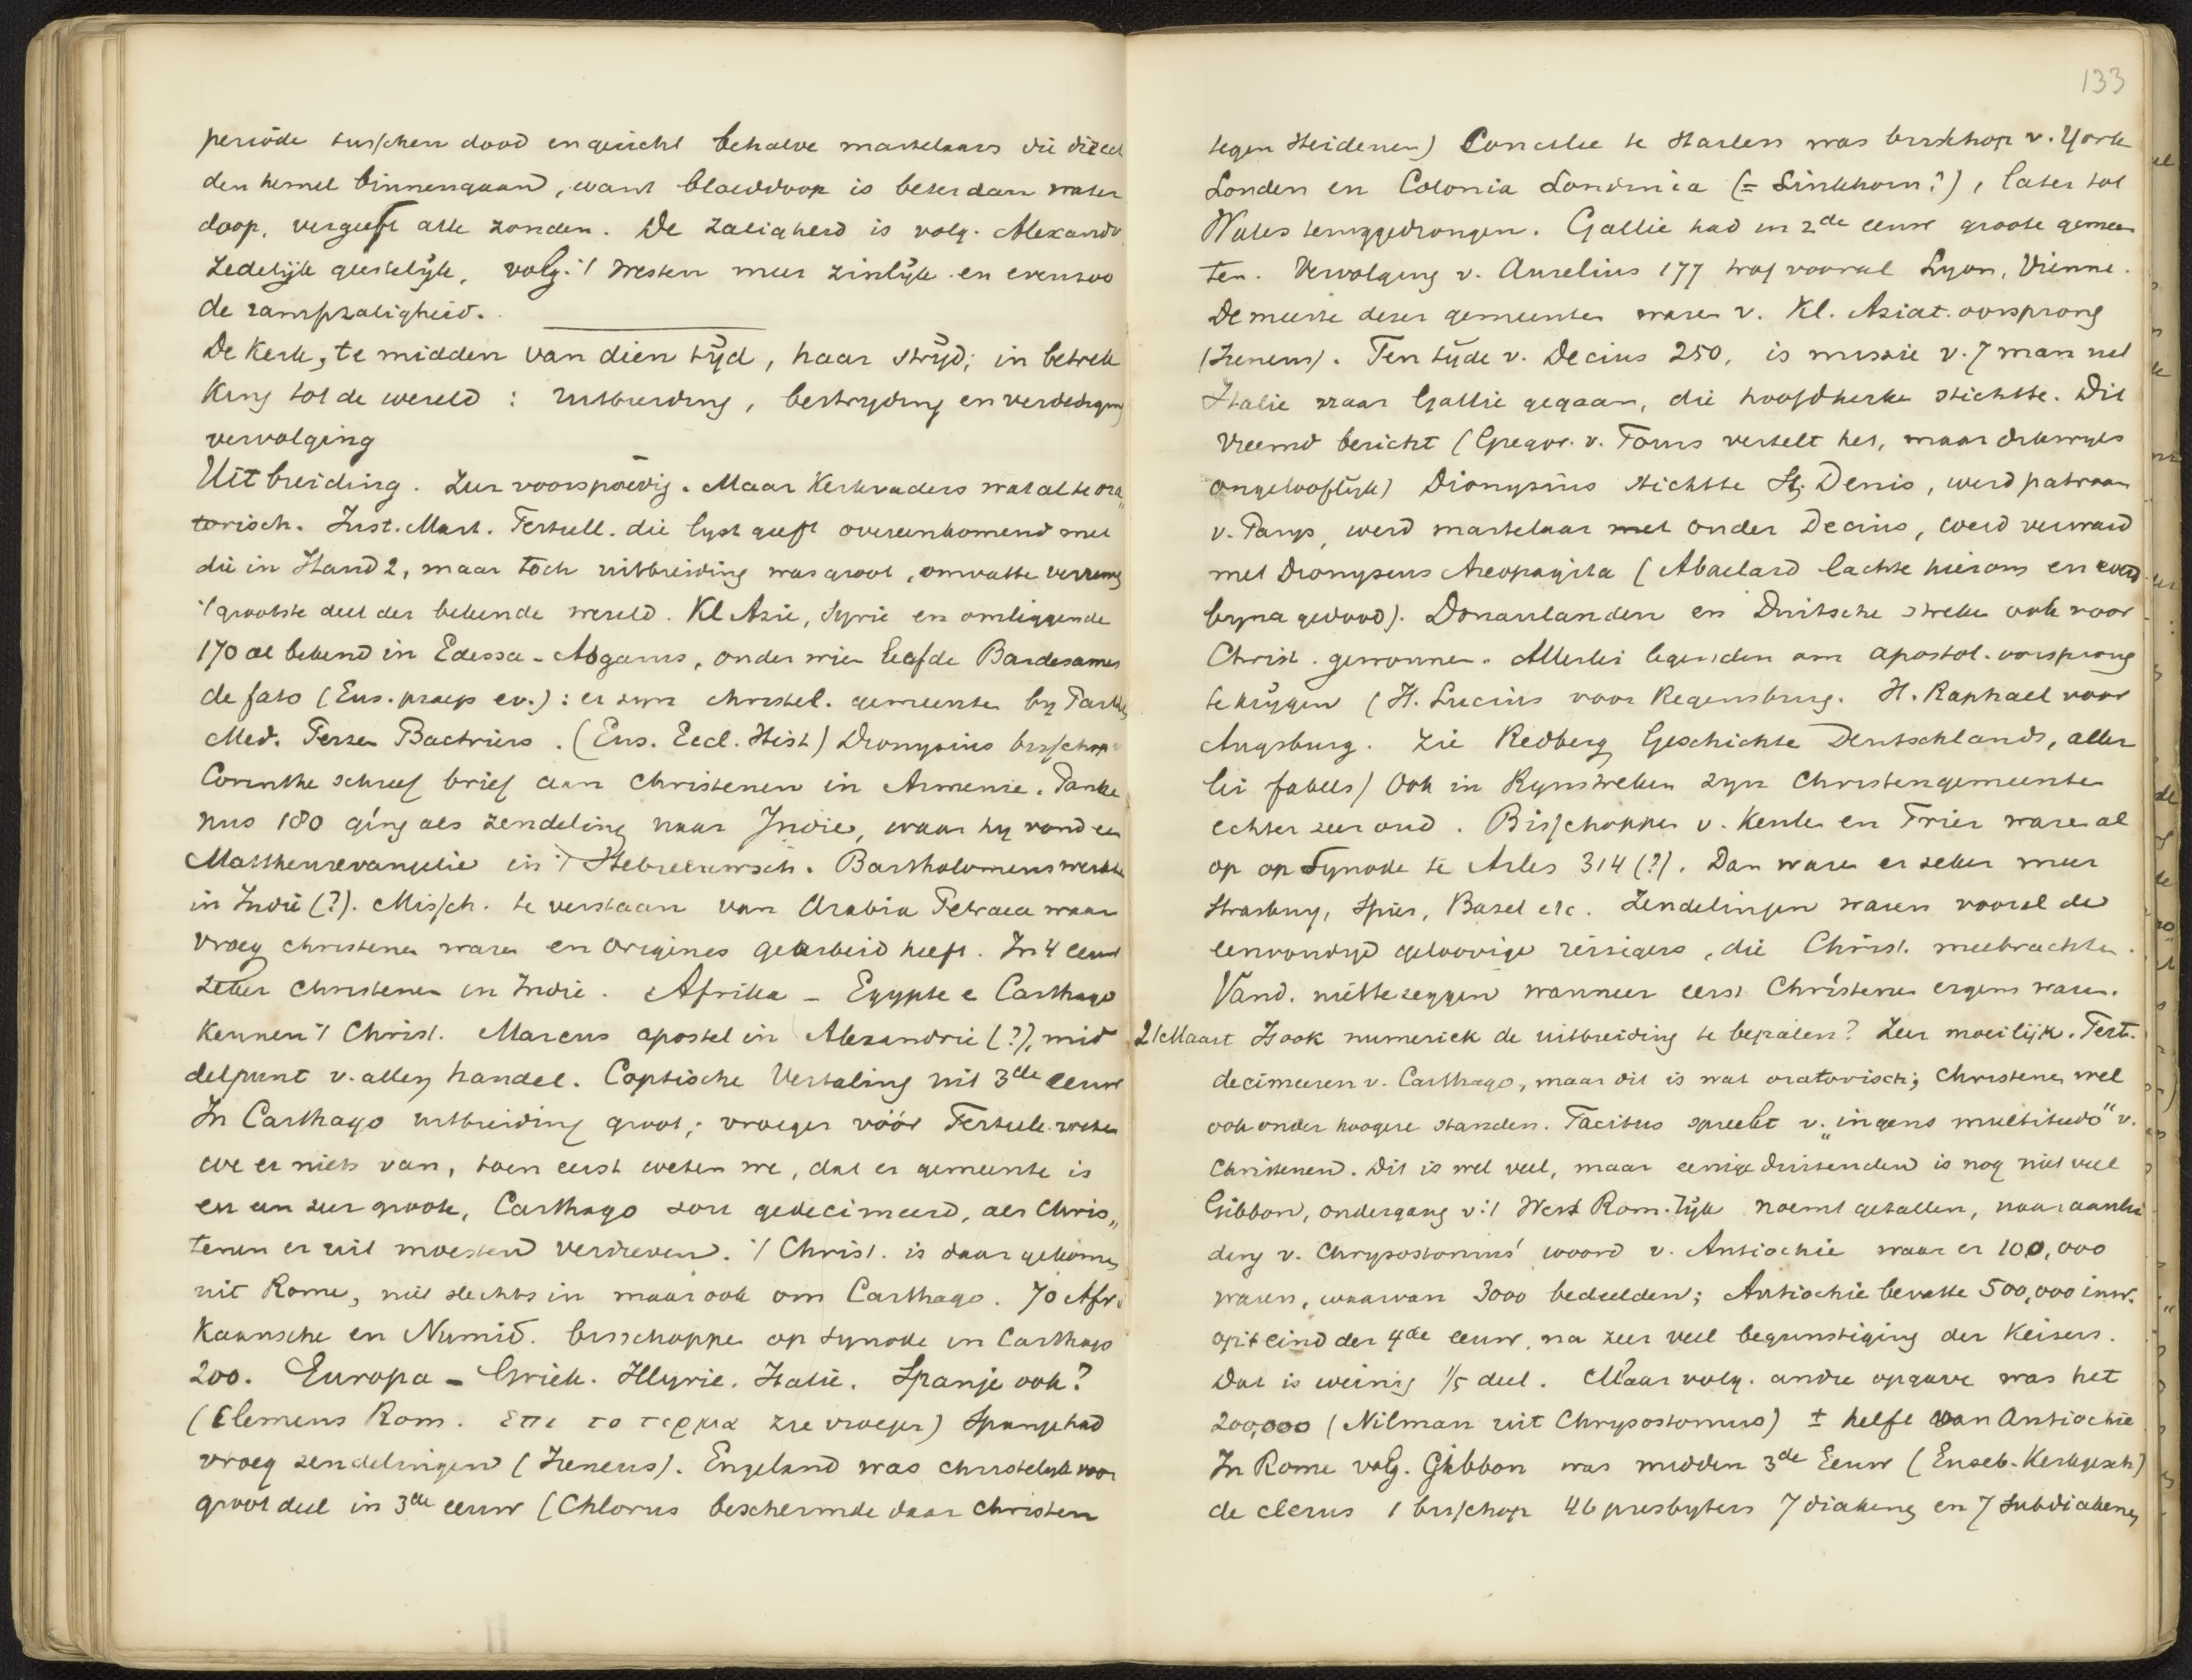 periode tusschen dood en gericht behalve martelaars die direct
den hemel binnengaan, want bloeddoop is beter dan water
doop, vergeeft alle zonden. De zaligheid is volg. Alexandr.
zedelijk geestelijk, volg. 't Westen meer zinlijk en evenzoo
de rampzaligheid.
De Kerk, te midden van dien tijd, haar strijd; in betrek
king tot de wereld: uitbreiding, bestryding en verdediging
vervolging
Uitbreiding. Zeer voorspoedig. Maar Kerkvaders wat al te ora„
torisch. Just. Mart. Tertull. die lyst geeft overeenkomend met
die in Hand 2, maar toch uitbreiding was groot, omvatte verreweg
't grootste deel der bekende wereld. Kl Azie, Syrie en omliggende
170 al bekend in Edessa - Abgarus, onder wien leefde Bardesanes
de fato (Eus. praep ev.): er zyn christel. gemeenten by Parthen
Med. Perzen Bactriers. (Eus. Eccl. Hist) Dionysius bisschop v
Corinthe schreef brief aan Christenen in Armenie. Pantae
nus 180 ging als zendeling naar Indie, waar hy vond een
Mattheusevangelie in 't Hebreeuwsch. Bartholomeus werkte
in Indië (?). Missch. te verstaan van Arabia Petraea waar
vroeg christenen waren en Origines gearbeid heeft. In 4 eeuw
zeker Christenen in Indië. Afrika - Egypte e Carthago
kennen 't Christ. Marcus apostel in Alexandrië (?), mid
delpunt v. allen handel. Coptische Vertaling uit 3de eeuw
In Carthago uitbreiding groot; vroeger vóór Tertull. weten
we er niets van, toen eerst weten we, dat er gemeente is
en een zeer groote, Carthago zou gedecimeerd, als Chris„
tenen er uit moesten verdreven. 't Christ. is daar gekomen
uit Rome, niet slechts in maar ook om Carthago. 70 Afri
kaansche en Numid. bisschoppen op Synode in Carthago
200. Europa - Griek. Illyrie. Italië. Spanje ook?
(Clemens Rom. επι το τερμα zie vroeger) Spanje had
vroeg zendelingen (Ireneus). Engeland was christelyk voor
groot deel in 3de eeuw (Chlorus beschermde daar Christen
133
tegen Heidenen) Concilie te Harles was bisschop v. York
Londen en Colonia Londinia (= Linkhorn?), later tot
Wales teruggedrongen. Gallië had in 2de eeuw groote gemeen
ten. Vervolging v. Aurelius 177 trof vooral Lyon, Vienne.
De meeste dezer gemeenten waren v. Kl. Aziat. oorsprong
(Ireneus). Ten tijde v. Decius 250, is missie v. 7 man uit
Italië naar Gallië gegaan, die hoofdkerken stichtte. Dit
vreemd bericht (Gregor. v. Tours vertelt het, maar dikwyls
ongelooflijk) Dionysius stichtte St. Denis, werd patroon
v. Parys, werd martelaar met onder Decius, werd verward
met Dionysius Areopagita (Abaelard lachte hierom en werd
byna gedood). Donaulanden en Duitsche streken ook voor
Christ. gewonnen. Allerlei legenden om apostol. oorsprong
te krijgen (H. Lucius voor Regensburg. H. Raphael voor
Augsburg. Zie Redberg Geschichte Deutschlands, aller
lei fabels) Ook in Rynstreken zyn Christengemeenten
echter zeer oud. Bisschoppen v. Keulen en Trier waren al
op op Synode te Arles 314 (?). Dan waren er zeker meer
Strasburg, Spiers, Basel etc. Zendelingen waren vooral de
eenvoudige geloovige reizigers, die Christ. meebrachten.
Vand. niet te zeggen wanneer eerst Christenen ergens waren.
21 Maart Is ook numeriek de uitbreiding te bepalen? Zeer moeilijk. Tert.
decimeeren v. Carthago, maar dit is wat oratorisch; Christenen wel
ook onder hoogere standen. Tacitus spreekt v. „ingens multitudo" v.
Christenen. Dit is wel veel, maar eenige duizenden is nog niet veel
Gibbon, ondergang v. 't West Rom. rijk noemt getallen, naar aanlei
ding v. Chrysostomus' woord v. Antiochie waar er 100,000
waren, waarvan 3000 bedeelden; Antiochie bevatte 500,000 inw.
op 't eind der 4de eeuw, na zeer veel begunstiging der Keizers.
Dat is weinig 1/5 deel. Maar volg. andre opgave was het
200,000 (Milman uit Chrysostomus) ± helft van Antiochie
In Rome volg. Gibbon was midden 3de Eeuw (Euseb. Kerkgesch)
de clerus 1 bisschop 46 presbyters 7 diakens en 7 Subdiakenen